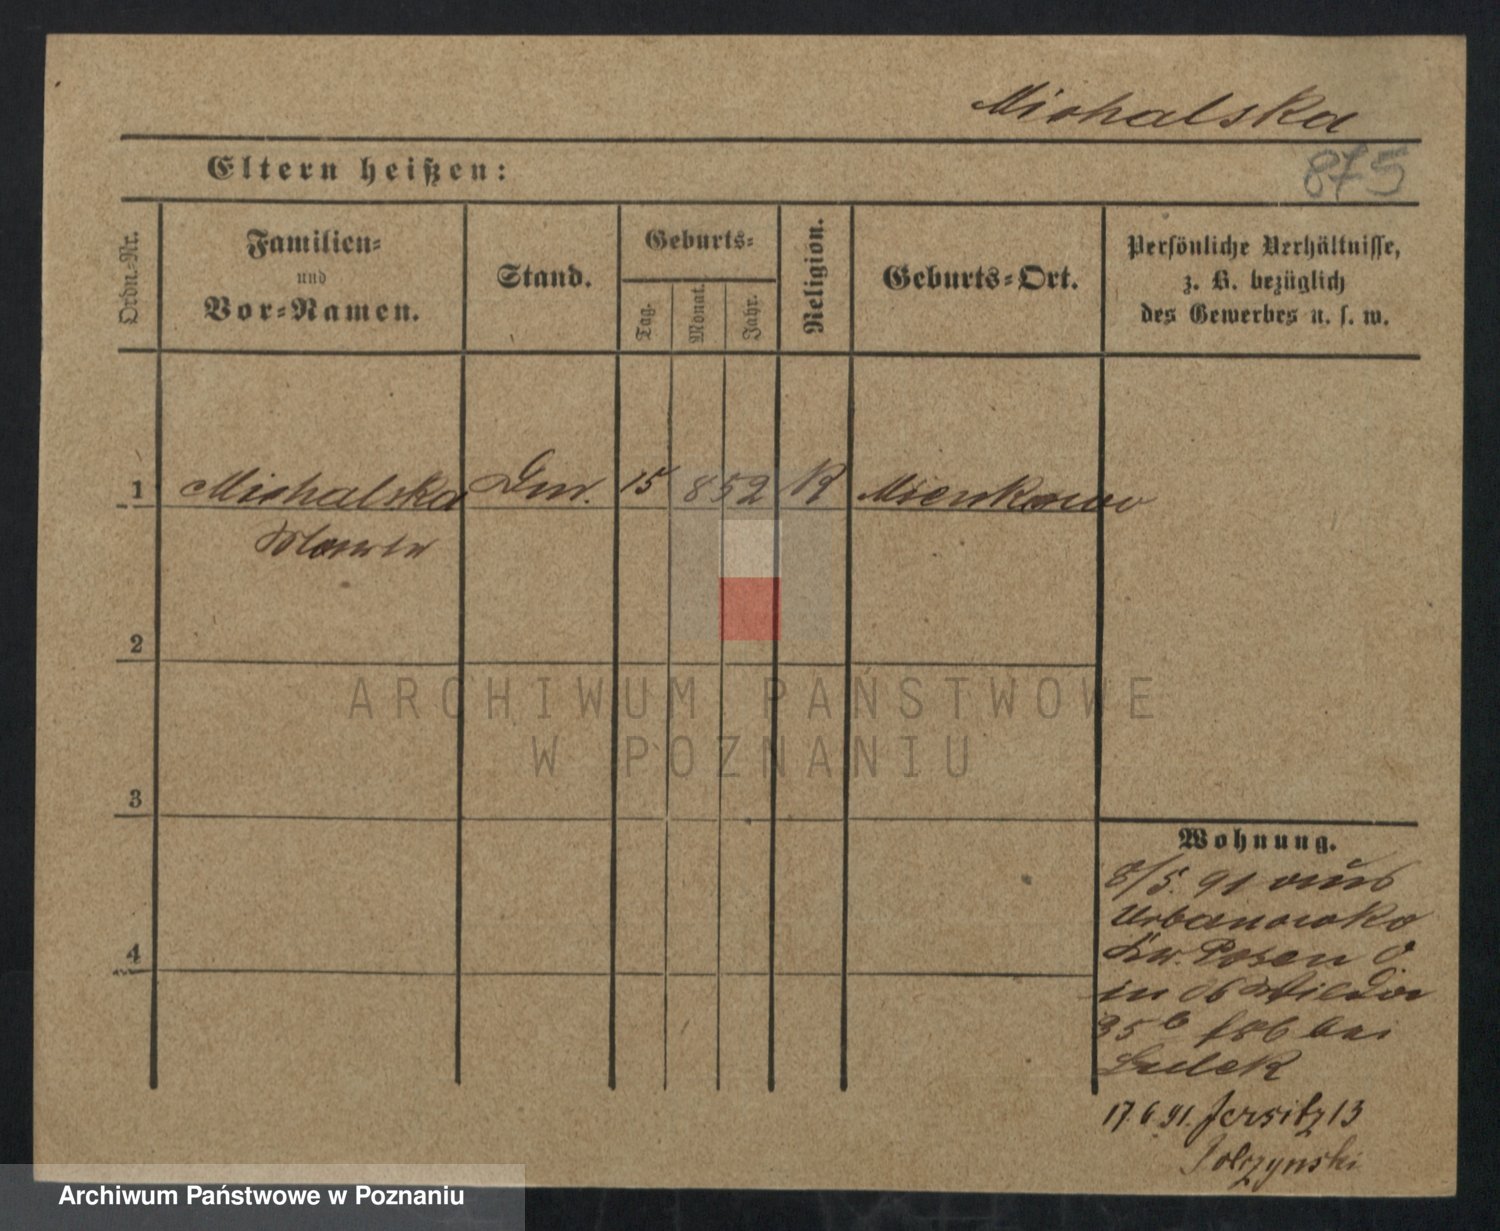 Michalska
875
Eltern heißen:
Ordn.-Nr.
Familien-
und
Vor-Namen.
Stand.
Geburts-
Tag.
Monat.
Jahr.
Religion.
Geburts-Ort.
Persönliche Verhältnisse,
z. B. bezüglich
des Gewerbes u. s. w.
1 Michalska 15 8 52 K
2
3
4
Wohnung.
8/5. 91 aus
Urbanowko
Kr. Posen O
in
35b bei
17.6.91. Jersitz 13
ARCHIWUM PAŃSTWOWE
W POZNANIU
Archiwum Państwowe w Poznaniu